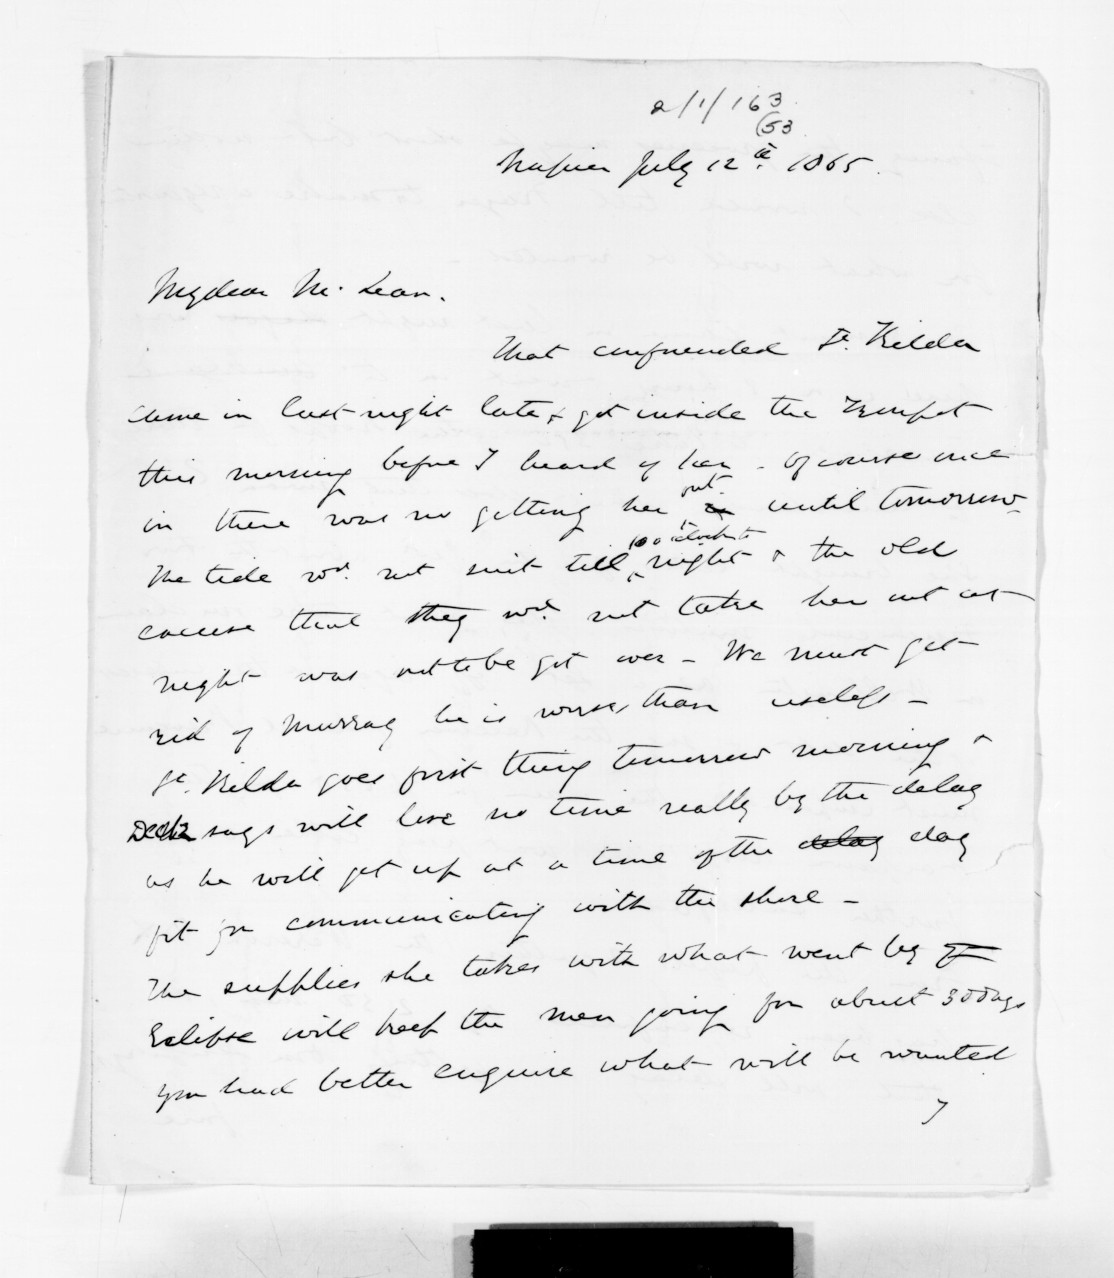 2/1/163
(53
Napier July 12th. 1865.
My dear McLean.
That confounded St. Kilda
came in last night late & got inside the
this morning before I heard of her - Of course once
in there was no getting her out until tomorrow
the tide wd. not suit till 10 o'clock to night & the old
excuse that they wd. not take her out at
night was not to be got over - We must get
rid of Murray he is worse than useless -
St. Kilda goes first thing tomorrow morning &
says will lose no time really by the delay
as he will get up at a time of the delay day
fit for communicating with the shore -
The supplies she takes with what went by
Eclipse will keep the men going for about 30 days
you had better enquire what will be wanted